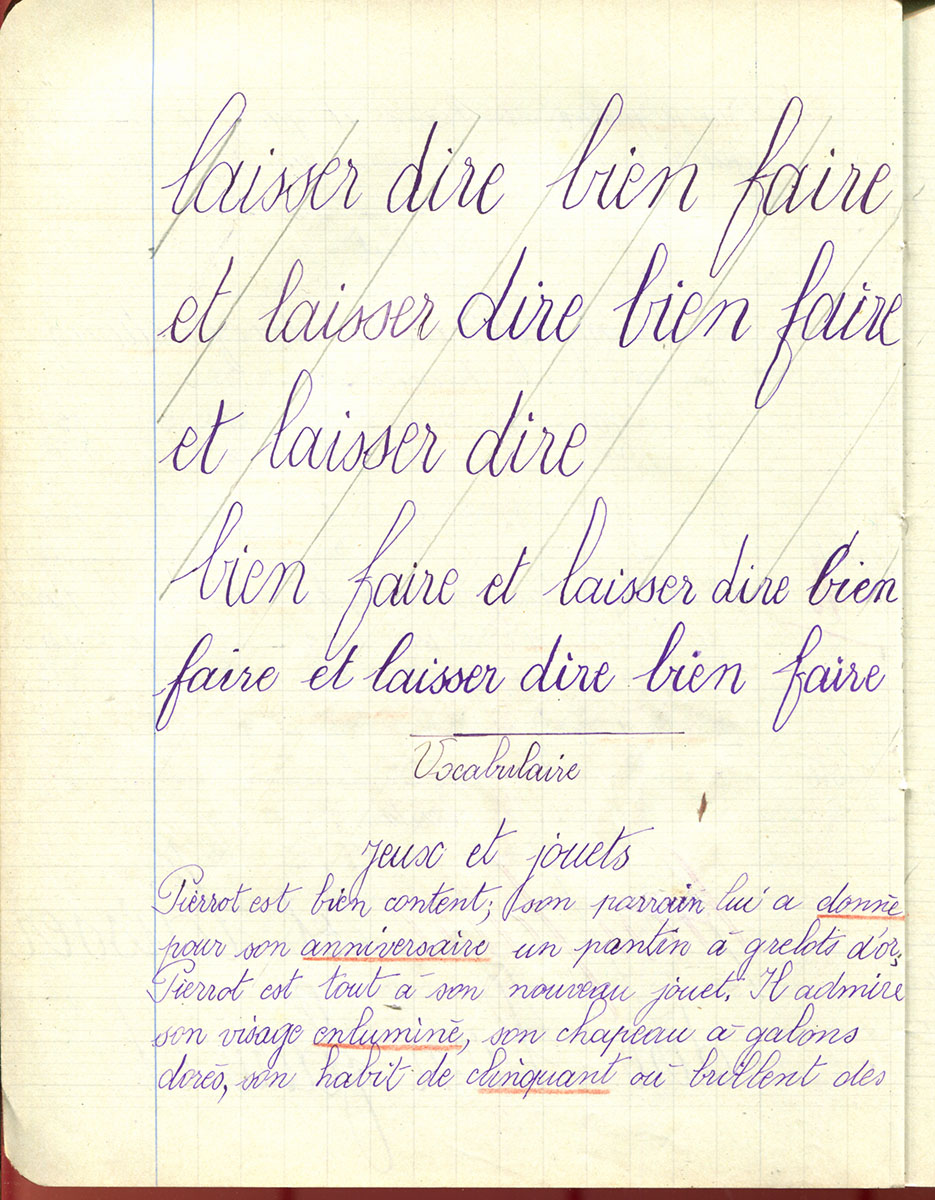 laisser dire bien faire
et laisser dire bien faire
et laisser dire
bien faire et laisser dire bien
faire et laisser dire bien faire
Vocabulaire
Jeux et jouets
Pierrot est bien content; son parrain lui a donné
pour son anniversaire un pantin à grelots d'or;
Pierrot est tout à son nouveau jouet. Il admire
son visage enluminé, son chapeau à galons
dorés, son habit de clinquant où brillent des